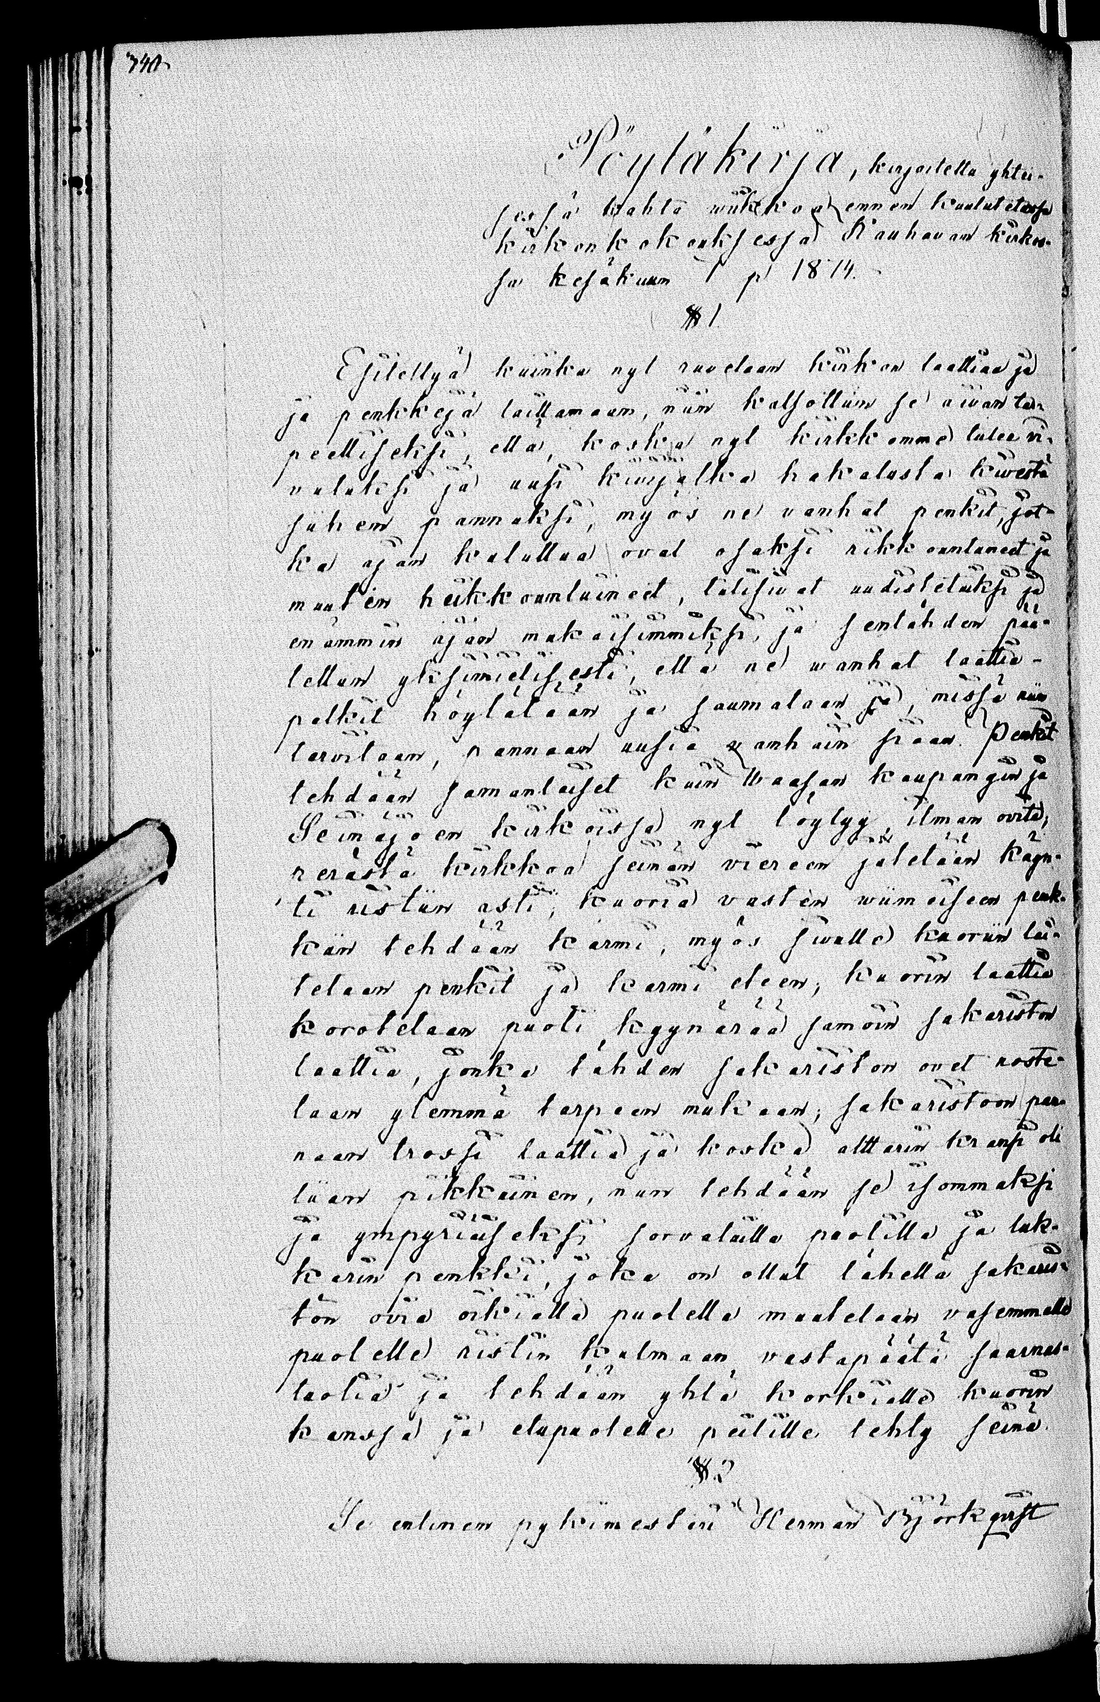 340.
Pöytäkirja, kirjoitettu yhtei-
sessä kahta wiikkoa ennen kuulutetussa
kirkonkokouksessa Kauhavan kirkos-
sa kesäkuun 1 p 1874.
§ 1.
Esitettyä kuinka nyt ruvetaan kirkon laattiaa ja
ja penkkejä laittamaan, niin katsottiin se aivan tar-
peelliseksi, että, koska nyt kirkkomme tulee
ja uusi kivijalka hakatusta kivestä
siihen pannuksi, myös ne vanhat penkit, jot-
ka ajan kuluttua ovat osaksi rikkountuneet ja
muuten heikkountuineet, tulisivat uudistetuksi ja
enämmin ajan mukaisimmiksi, ja sentähden pää-
tettiin yksimielisesti, että ne wanhat laattia-
palkit höylätään ja saumataan ja, missä niin
tarvitaan, pannaan uusia vanhain siaan. Penkit
tehdään samanlaiset kuin Waasan kaupungin ja
Seinäjoen kirkoissa nyt löytyy, ilman ovita,
perästä kirkkoa seinän viereen jätetään käyn-
ti ristiin asti; kuoria vasten wiimeiseen penk-
kiin tehdään karmi, myös sivulle kuoriin lai-
tetaan penkit ja karmi eteen; kuorin laattia
korotetaan puoli kyynärää samoin sakariston
laattia, jonka tähden sakariston ovet noste-
taan ylemmä tarpeen mukaan; sakaristoon pan-
naan trossi laattia ja koska alttarin kranssi oli
liian pikkuinen, niin tehdään se isommaksi
ja ympyriäiseksi sorvatuilla puolilla ja luk-
karin penkki, joka on ollut lähellä sakaris-
ton ovia oikialla puolella muutetaan vasemmalle
puolelle ristin kulmaan vastapäätä saarnas-
tuolia ja tehdään yhtä korkialle kuorin
kanssa ja etupuolelle peilille tehty seinä.
§ 2
Se entinen pykimesteri Herman Björkqvist